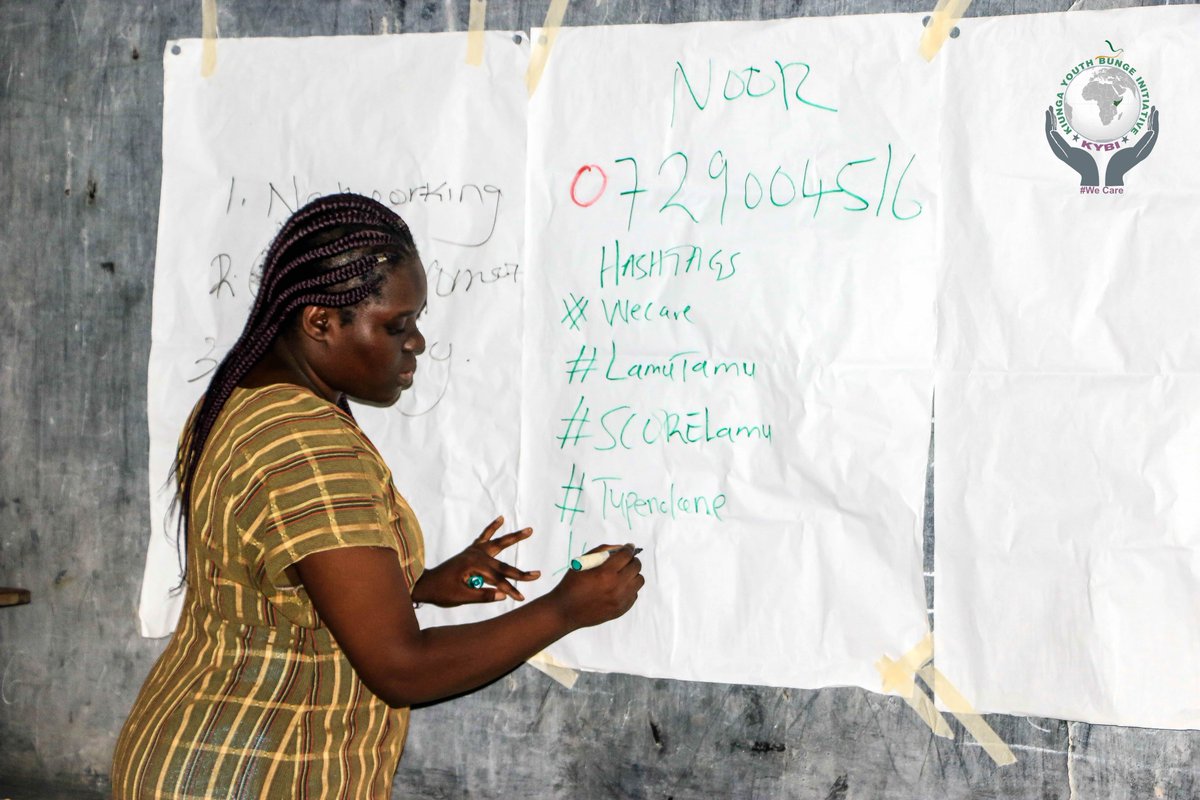 1. Networking
2.
3
NOOR
0729004516
HASHTAGS
# Wecare
# LamuTamu
# SCORELamu
# Tupendane
#
KIUNGA YOUTH BUNGE INITIATIVE
KYBI
#We Care